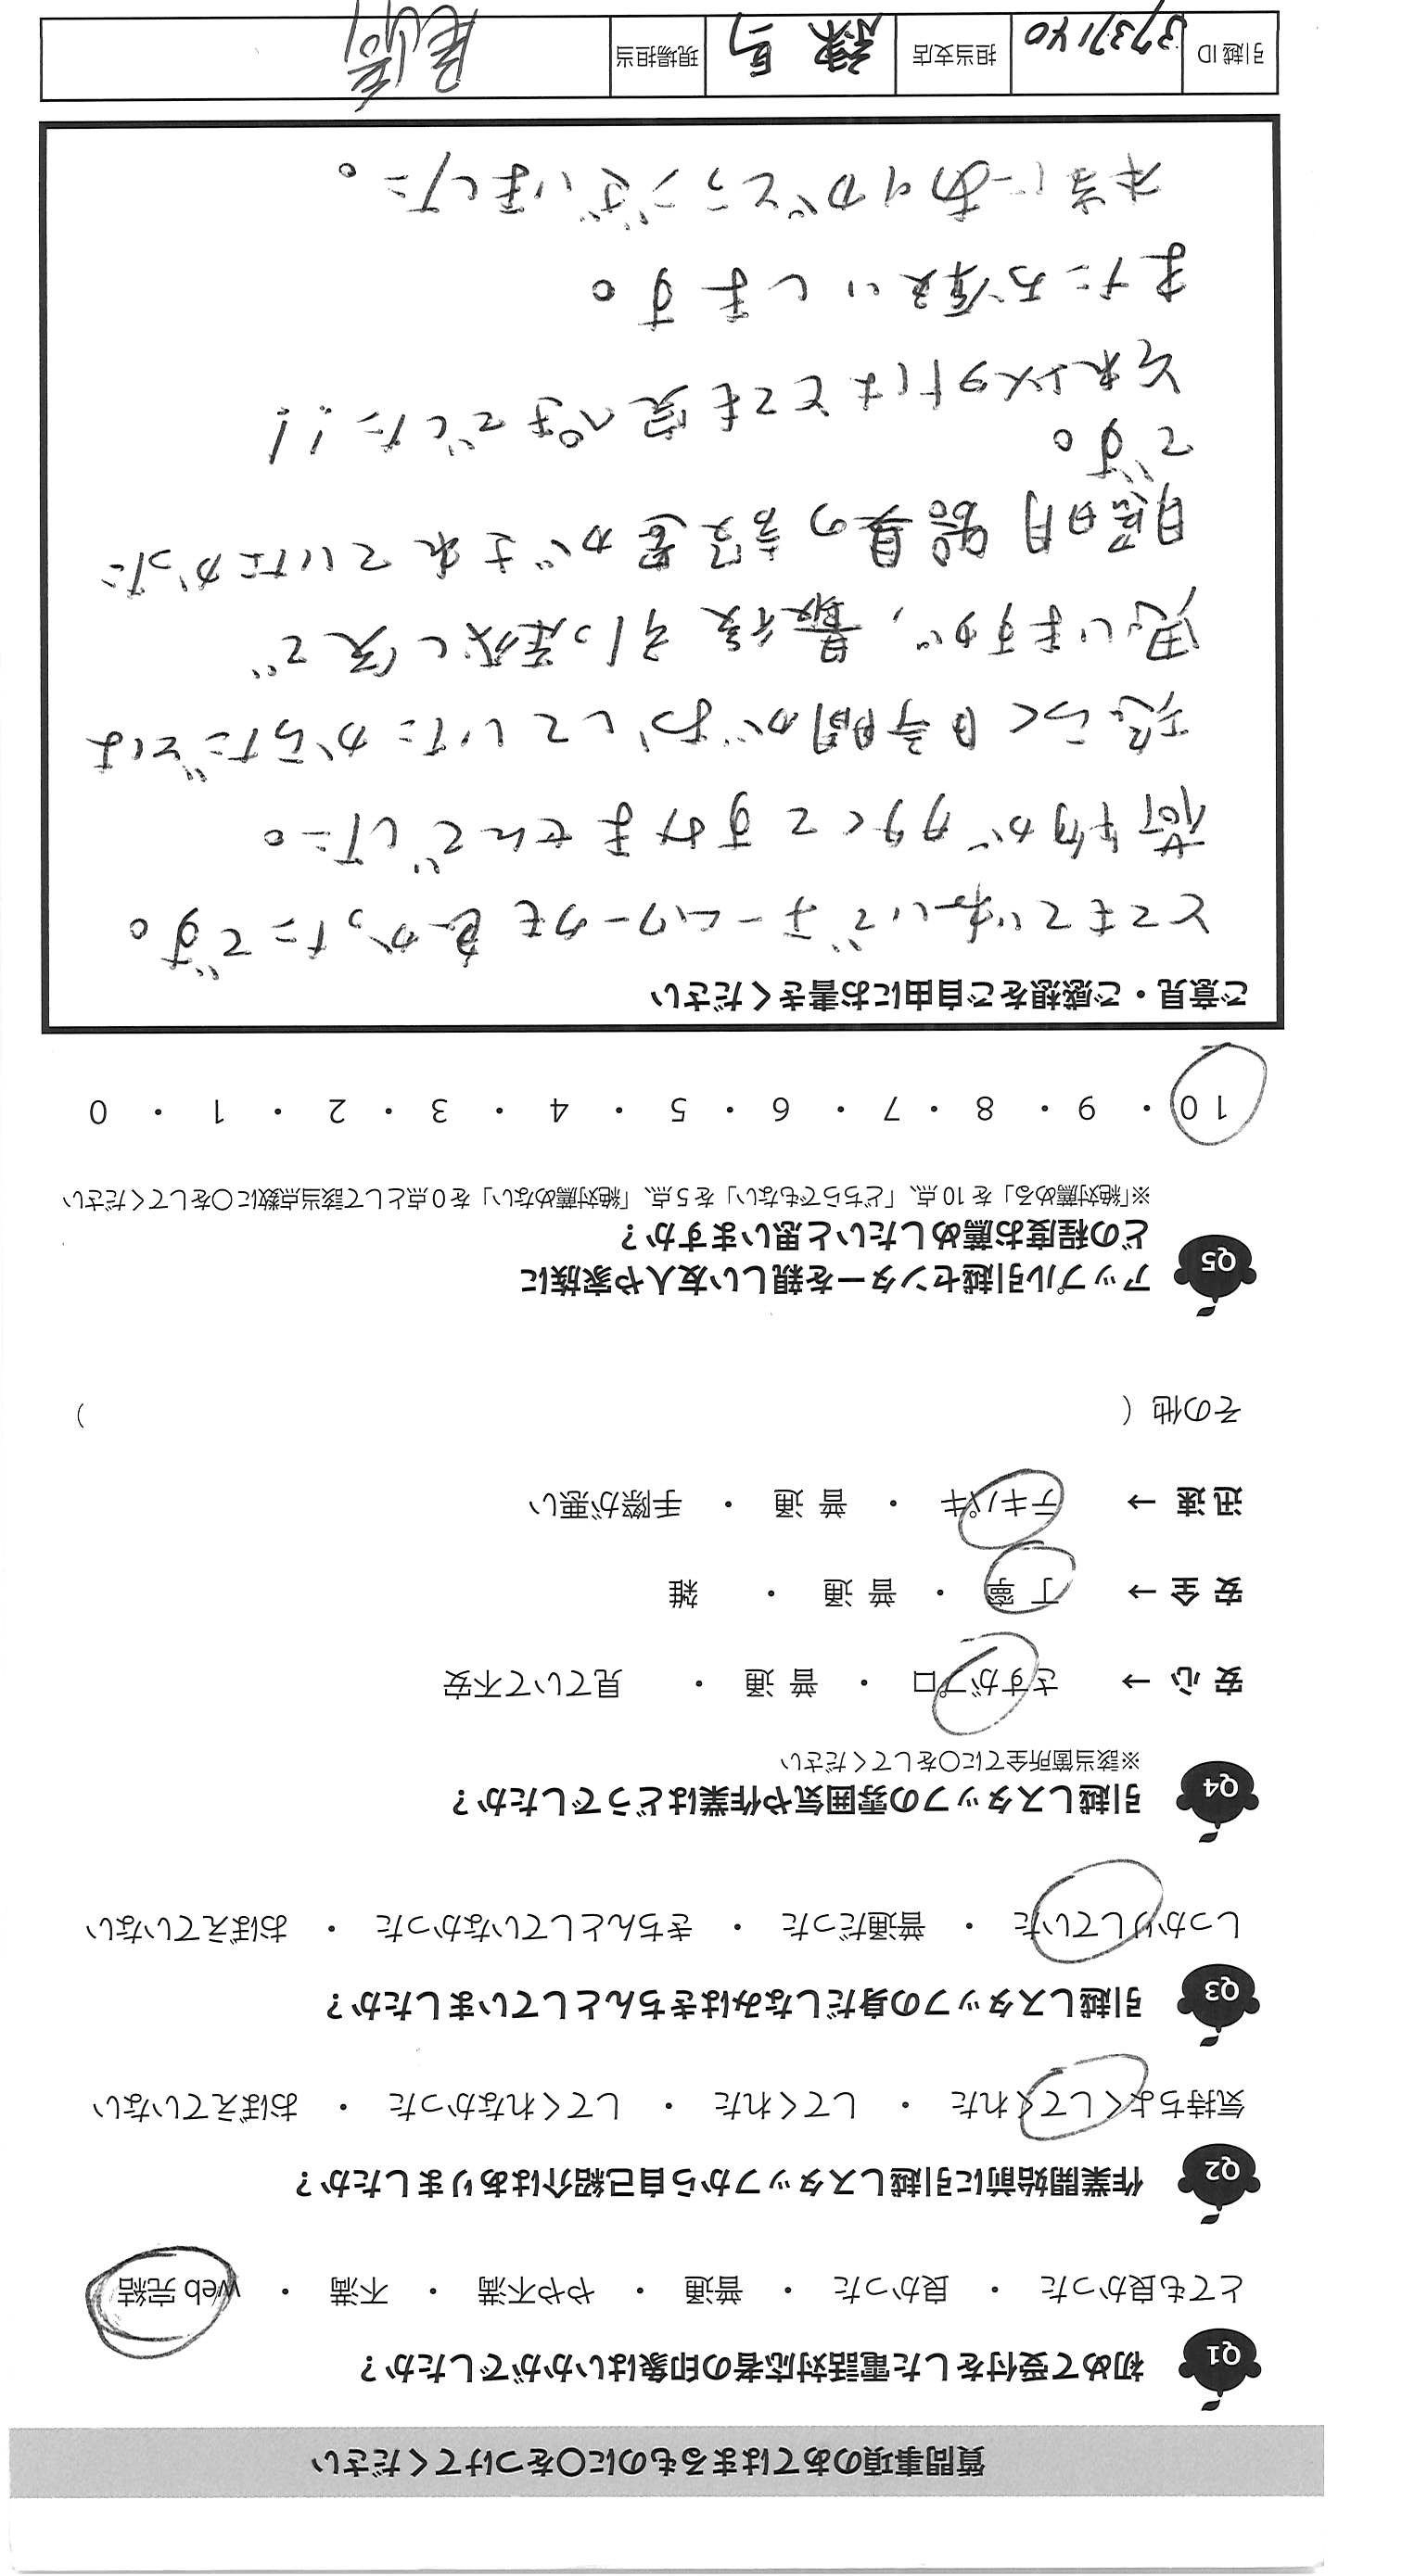 質問事項のあてはまるものに〇をつけてください
Q1 初めて受付をした電話対応者の印象はいかがでしたか？
とても良かった ・ 良かった ・ 普通 ・ やや不満 ・ 不満 ・ web 完結
Q2 作業開始前に引越しスタッフから自己紹介はありましたか？
気持ちよくしてくれた ・ してくれた ・ してくれなかった ・ おぼえていない
Q3 引越しスタッフの身だしなみはきちんとしていましたか？
しっかりしていた ・ 普通だった ・ きちんとしていなかった ・ おぼえていない
Q4 引越しスタッフの雰囲気や作業はどうでしたか？
※該当箇所全てに〇をしてください
安 心 → さすがプロ ・ 普 通 ・ 見ていて不安
安 全 → 丁 寧 ・ 普 通 ・ 雑
迅 速 → テキパキ ・ 普 通 ・ 手際が悪い
その他（ ）
Q5 アップル引越センターを親しい友人や家族に
どの程度お薦めしたいと思いますか？
※「絶対薦める」を 10 点、「どちらでもない」を 5 点、「絶対薦めない」を 0 点として該当点数に〇をしてください
10 ・ 9 ・ 8 ・ 7 ・ 6 ・ 5 ・ 4 ・ 3 ・ 2 ・ 1 ・ 0
ご意見・ご感想をご自由にお書きください
とてもていねいでチームワークも良かったです。
荷物が多くてすみませんでした。
恐らく時間がおしていたからだとは
思いますが、最後引っ越し先で
照明器具の設置がされていなかった
です。
それ以外はとても完ぺきでした!!
またお願いします。
本当にありがとうございました。
引越 ID 3737140 担当支店 練馬 現場担当 尾崎